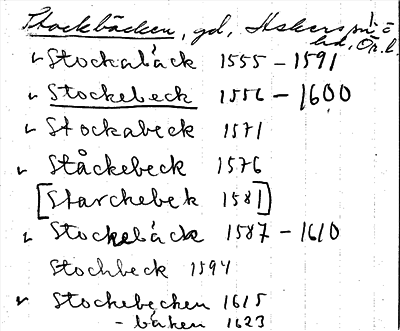 Stockbäcken, gd, Askers sn, Ö
bd, Ör. l.
Stockabäck 1555 – 1591
Stockebeck 1556 – 1600
Stockabeck 1571
Ståckebeck 1576
[Starckebek 1581]
Stockebäck 1587 – 1610
Stochbeck 1594
Stockebechen 1615
- bäken 1623